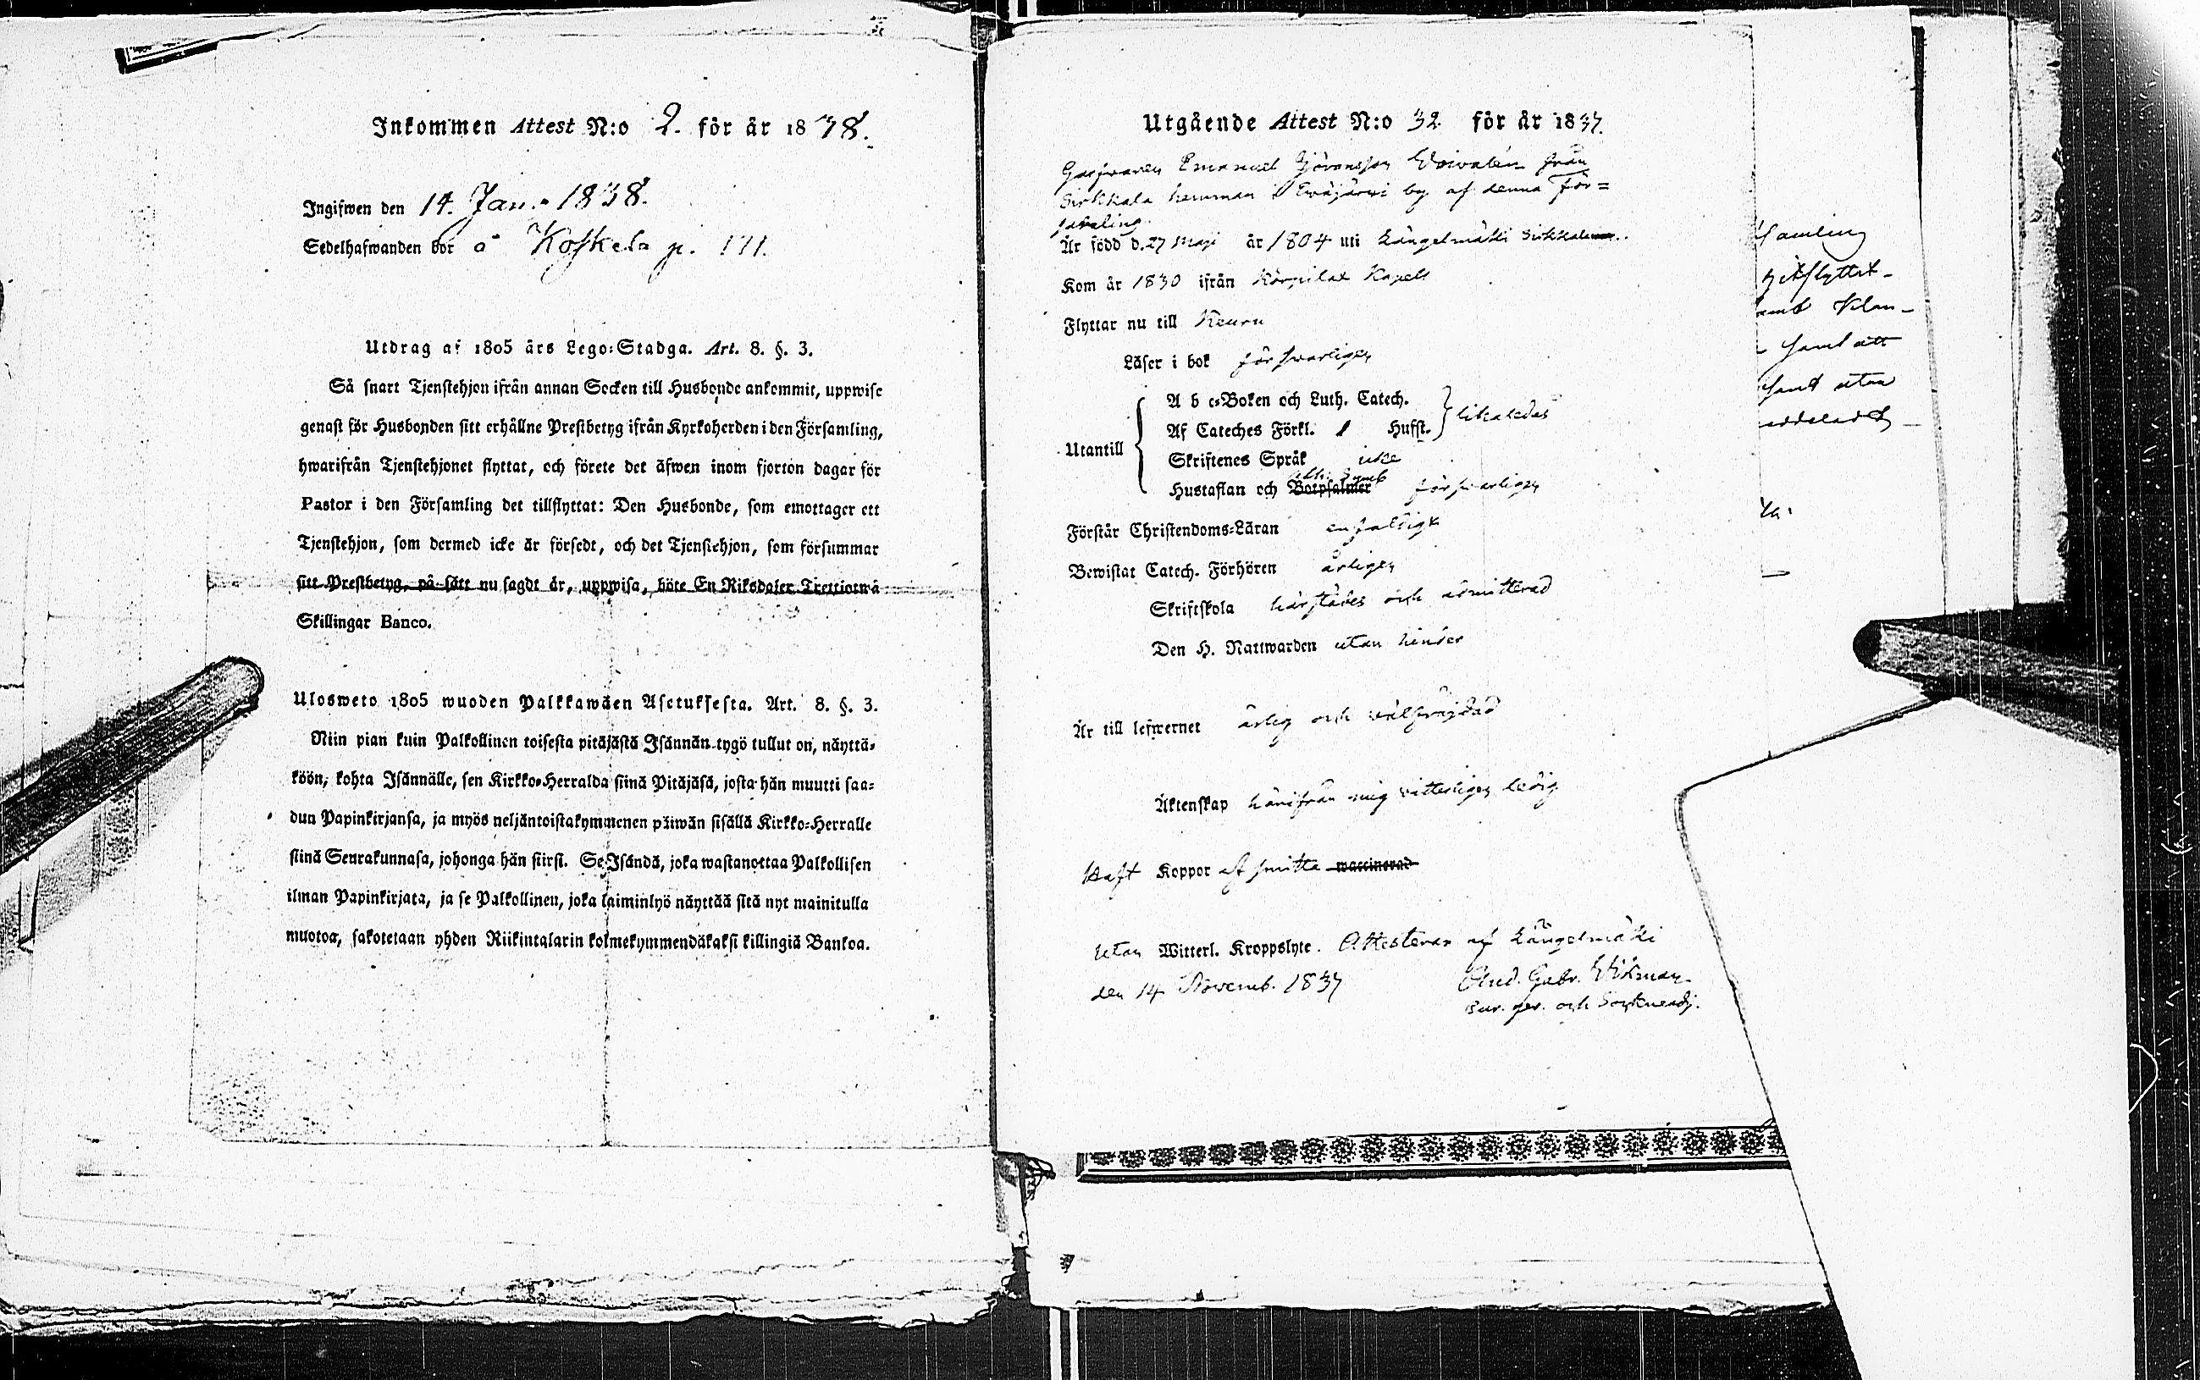 Inkommen Attest N:o 2. för år 1838.
Ingifwen den 14. Jan. 1838.
Sedelhafwanden bor å Koskela p. 171.
Utdrag af 1805 års Lego-Stadga. Art. 8. §. 3.
Så snart Tjenstehjon ifrån annan Socken till Husbonde ankommit, uppwise
genast för Husbonden sitt erhållne Prestbetyg ifrån Kyrkoherden i den Församling,
hwarifrån Tjenstehjonet flyttat, och förete det äfwen inom fjorton dagar för
Pastor i den Församling det tillflyttat: Den Husbonde, som emottager ett
Tjenstehjon, som dermed icke är försedt, och det Tjenstehjon, som försummar
sitt Prestbetyg, på sätt nu sagdt är, uppwisa, böte En Riksdaler Trettiotwå
Skillingar Banco.
Ulosweto 1805 wuoden Palkkawäen Asetuksesta. Art. 8. §. 3.
Niin pian kuin Palkollinen toisesta pitäjästä Isännän tygö tullut on, näyttä-
köön, kohta Isännälle, sen Kirkko-Herralda siinä Pitäjäsä, josta hän muutti saa-
dun Papinkirjansa, ja myös neljäntoistakymmenen päiwän sisällä Kirkko-Herralle
siinä Seurakunnasa, johonga hän siirsi. Se Isändä, joka wastanottaa Palkollisen
ilman Papinkirjata, ja se Palkollinen, joka laiminlyö näyttää sitä nyt mainitulla
muotoa, sakotetaan yhden Riikintalarin kolmekymmendäkaksi killingiä Bankoa.
Utgående Attest N:o 32 för år 1837.
Emanuel Göransson från
Sirkkala hemman i Ewäjärwi by af denna För=
samling
Är född d. 27 Maji år 1804 uti Längelmäki Sirkkala
Kom år 1830 ifrån Korpilax Kapell
Flyttar nu till Keuru
Läser i bok försvarligen
A b c-Boken och Luth. Catech.
Af Cateches Förkl. 1 Hufst. likaledes
Utantill
Skriftenes Språk icke
Ath. Symb
Hustaflan och Botpsalmer försvarligen
Förstår Christendoms-Läran enfaldigt
Bewistat Catech. Förhören årligen
Skriftskola härstädes och admitterad
Den H. Nattwarden utan hinder
Är till lefwernet ärlig och välfrägdad
Äktenskap härifrån mig vitterligen ledig
Haft Koppor af smitta waccinerad
Utan Witterl. Kroppslyte. Attesteras af Längelmäki
den 14 Novemb. 1837 And. Gabr. Wikman
och
samling
samt att
samt utan
meddelad